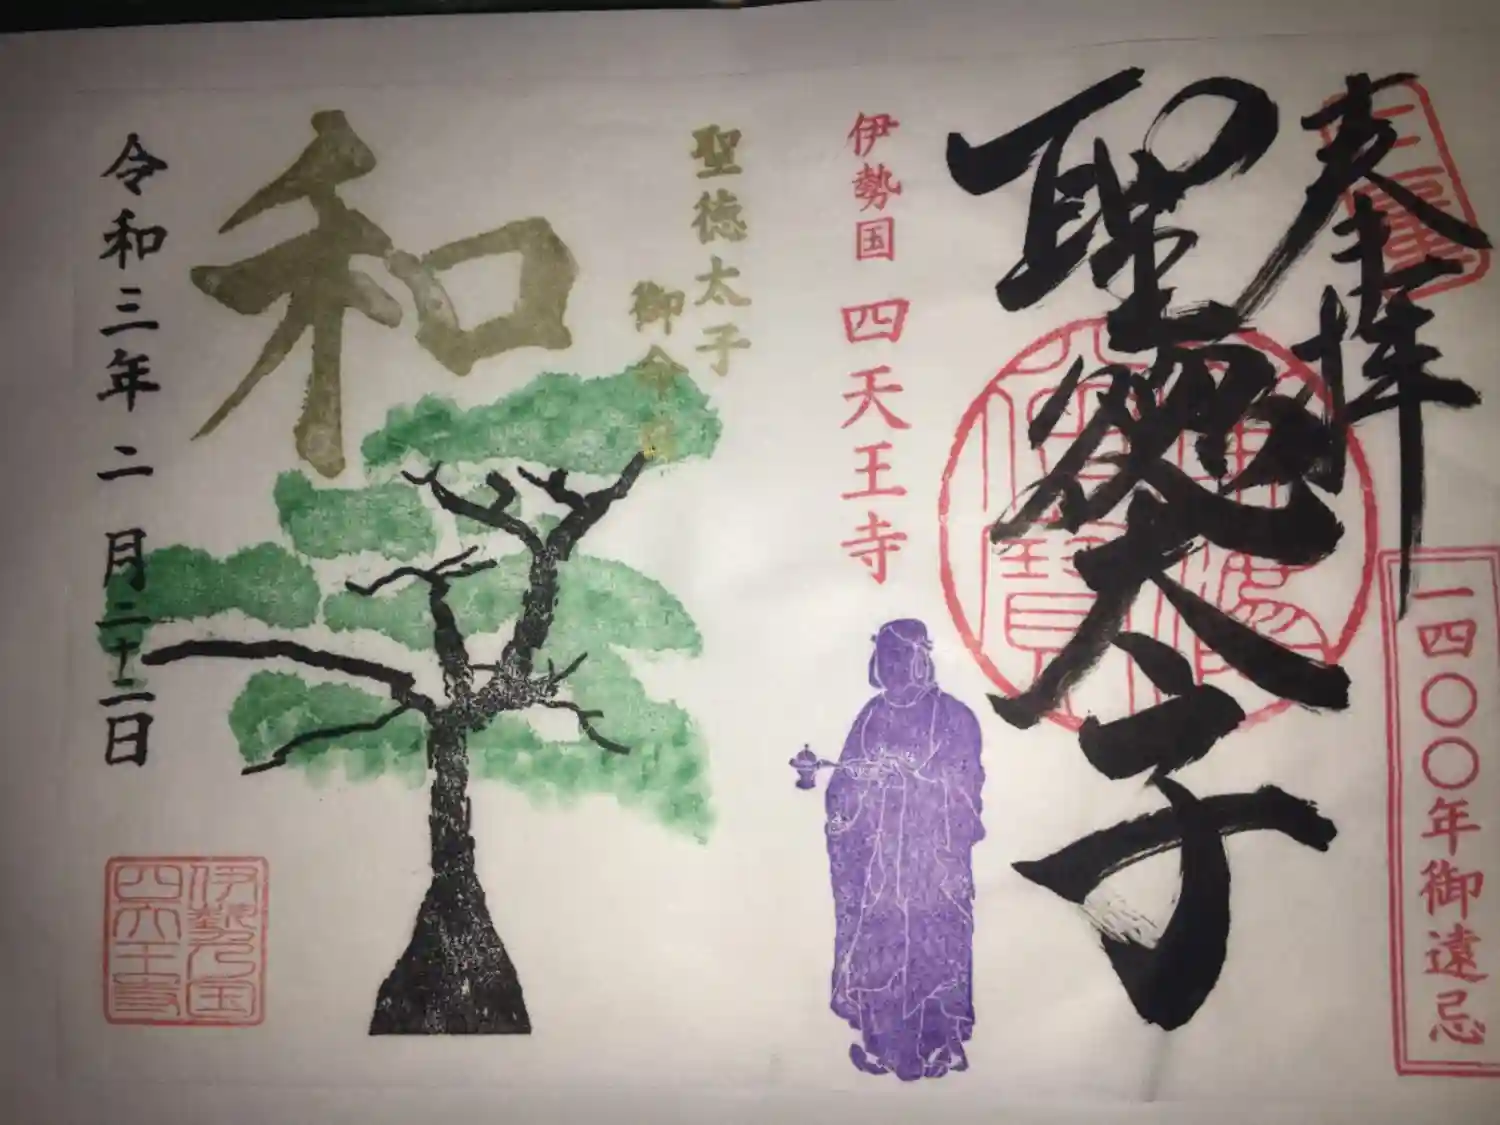 奉拝
聖徳太子
一四〇〇年御遠忌
伊勢国 四天王寺
聖徳太子
御命日
和
令和三年二月二十二日
伊勢乃国
四天王寺